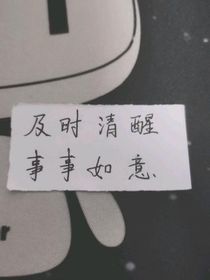 及时清醒
事事如意